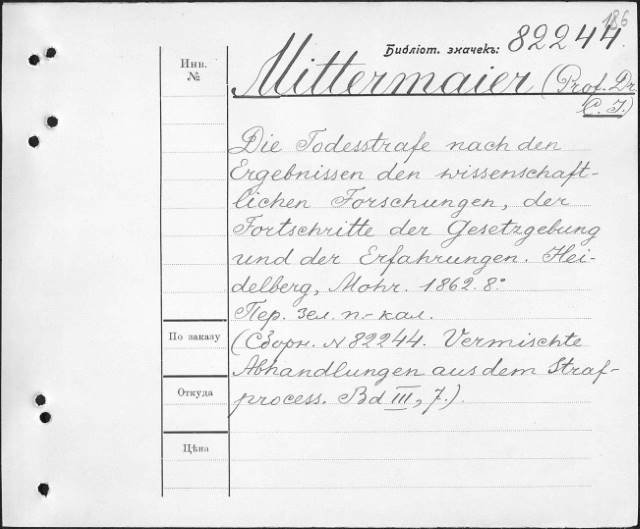 186
Библіот. значекъ: 82244.
Инв.
№
Mittermaier (Prof. Dr.
C. J.)
Die Todesstrafe nach den
Ergebnissen den wissenschaft-
lichen Forschungen, der
Fortschritte der Gesetzgebung
und der Erfahrungen. Hei-
delberg, Mohr. 1862. 8°.
Пер. зел. п.-кал.
По заказу
(Сборн. № 82244. Vermischte
Abhandlungen aus dem Straf-
Откуда
process. Bd III, 7.).
Цѣна